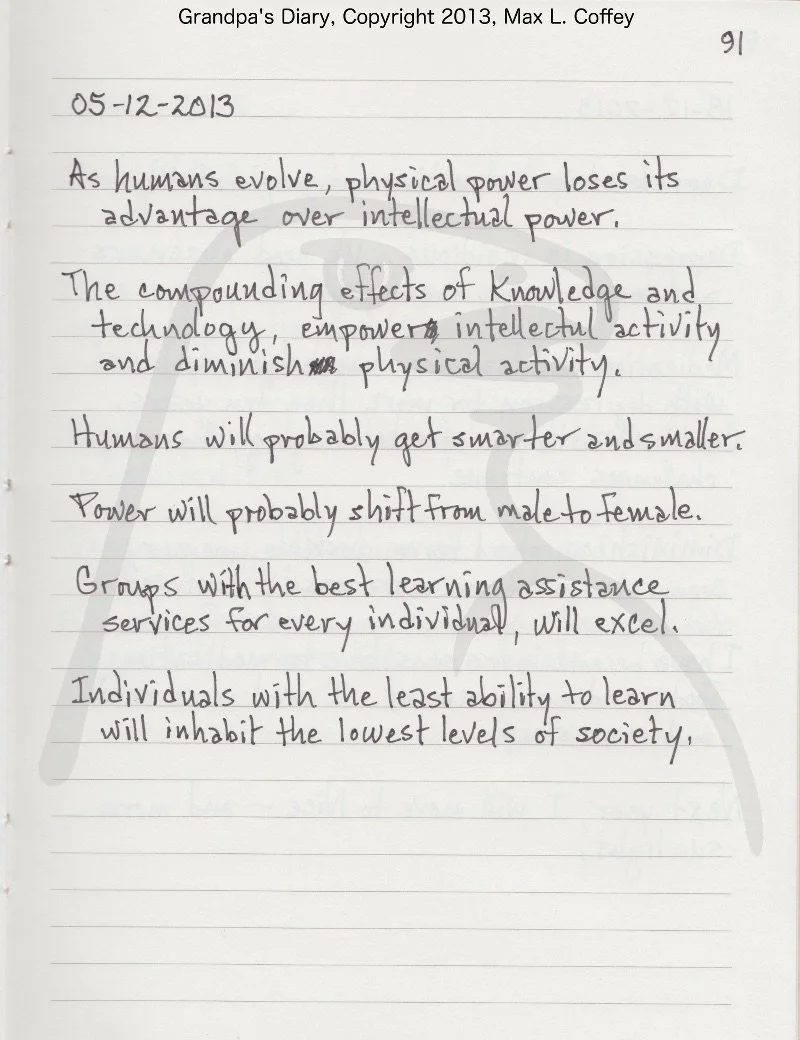 Grandpa's Diary, Copyright 2013, Max L. Coffey
91
05-12-2013
As humans evolve, physical power loses its
advantage over intellectual power.
The compounding effects of Knowledge and
technology, empower intellectul activity
and diminish physical activity.
Humans will probably get smarter and smaller.
Power will probably shift from male to female.
Groups with the best learning assistance
services for every individual, will excel.
Individuals with the least ability to learn
will inhabit the lowest levels of society.